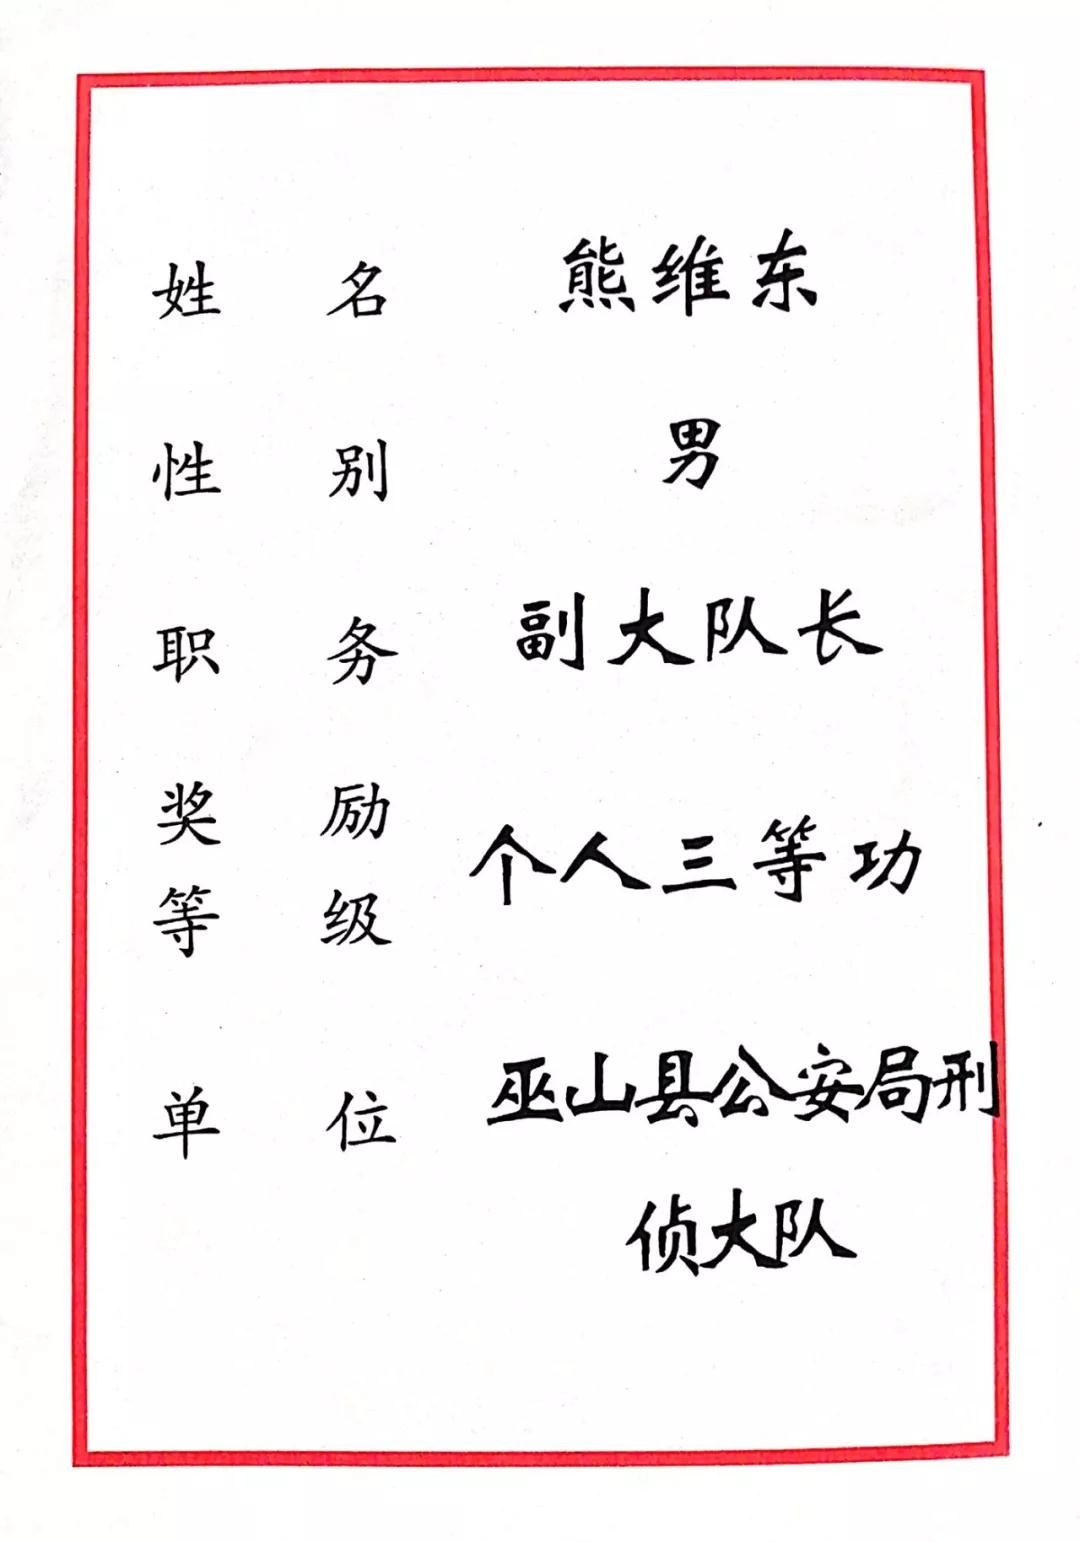 姓名 熊维东
性别 男
职务 副大队长
奖励等级 个人三等功
单位 巫山县公安局刑
侦大队